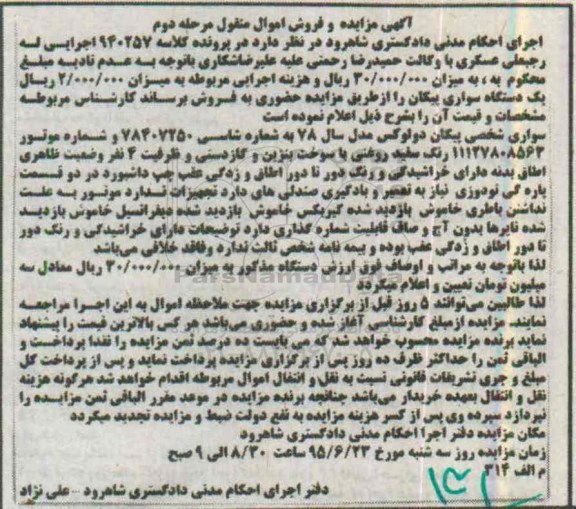 آگهی مزایده و فروش اموال منقول مرحله دوم
اجرای احکام مدنی دادگستری شاهرود در نظر دارد در پرونده کلاسه ۹۴۰۲۵۷ اجرایی له
رجبعلی عسگری با وکالت حمیدرضا رحمتی علیه علیرضاشکاری باتوجه به عدم تادیه مبلغ
محکوم به ، به میزان ۳۰/۰۰۰/۰۰۰ ریال و هزینه اجرایی مربوطه به میزان ۲/۰۰۰/۰۰۰ ریال
یک دستگاه سواری پیکان را ازطریق مزایده حضوری به فروش برساند کارشناس مربوطه
مشخصات و قیمت آن را بشرح ذیل اعلام نموده است
سواری شخصی پیکان دولوکس مدل سال ۷۸ به شماره شاسی ۷۸۴۰۷۲۵۰ و شماره موتور
۱۱۱۲۷۸۰۸۵۶۳ رنگ سفید روغنی با سوخت بنزین و گازدستی و ظرفیت ۴ نفر وضعیت ظاهری
اطاق بدنه دارای خراشیدگی و رنگ دور تا دور اطاق و زدگی عقب چپ داشبورد در دو قسمت
پاره گی تودوزی نیاز به تعمیر و بادگیری صندلی های دارد تجهیزات ندارد موتور به علت
نداشتن باطری خاموش بازدید شده گیربکس خاموش بازدید شده دیفرانسیل خاموش بازدید
شده تایرها بدون آج و صاف قابلیت شماره گذاری دارد توضیحات دارای خراشیدگی و رنگ دور
تا دور اطاق و زدگی عقب بوده و بیمه نامه شخص ثالث ندارد وفاقد خلافی می‌باشد
لذا باتوجه به مراتب و اوصاف فوق ارزش دستگاه مذکور به میزان ۳۰/۰۰۰/۰۰۰ ریال معادل سه
میلیون تومان تعیین و اعلام میگردد
لذا طالبین می‌توانند ۵ روز قبل از برگزاری مزایده جهت ملاحظه اموال به این اجرا مراجعه
نمایند. مزایده ازمبلغ کارشناسی آغاز شده و حضوری می‌باشد هر کس بالاترین قیمت را پیشنهاد
نماید برنده مزایده محسوب خواهد شد که می بایست ده درصد ثمن مزایده را نقدا پرداخت و
الباقی ثمن را حداکثر ظرف ده روز پس از برگزاری مزایده پرداخت نماید و پس از پرداخت کل
مبلغ و جری تشریفات قانونی نسبت به نقل و انتقال اموال مربوطه اقدام خواهد شد هرگونه هزینه
نقل و انتقال بعهده خریدار می‌باشد چنانچه برنده مزایده در موعد مقرر الباقی ثمن مزایده را
نپردازد سپرده وی پس از کسر هزینه مزایده به نفع دولت ضبط و مزایده تجدید میگردد
مکان مزایده دفتر اجرا احکام مدنی دادگستری شاهرود
زمان مزایده روز سه شنبه مورخ ۹۵/۶/۲۳ ساعت ۸/۳۰ الی ۹ صبح
م الف ۳۱۴
دفتر اجرای احکام مدنی دادگستری شاهرود - علی نژاد